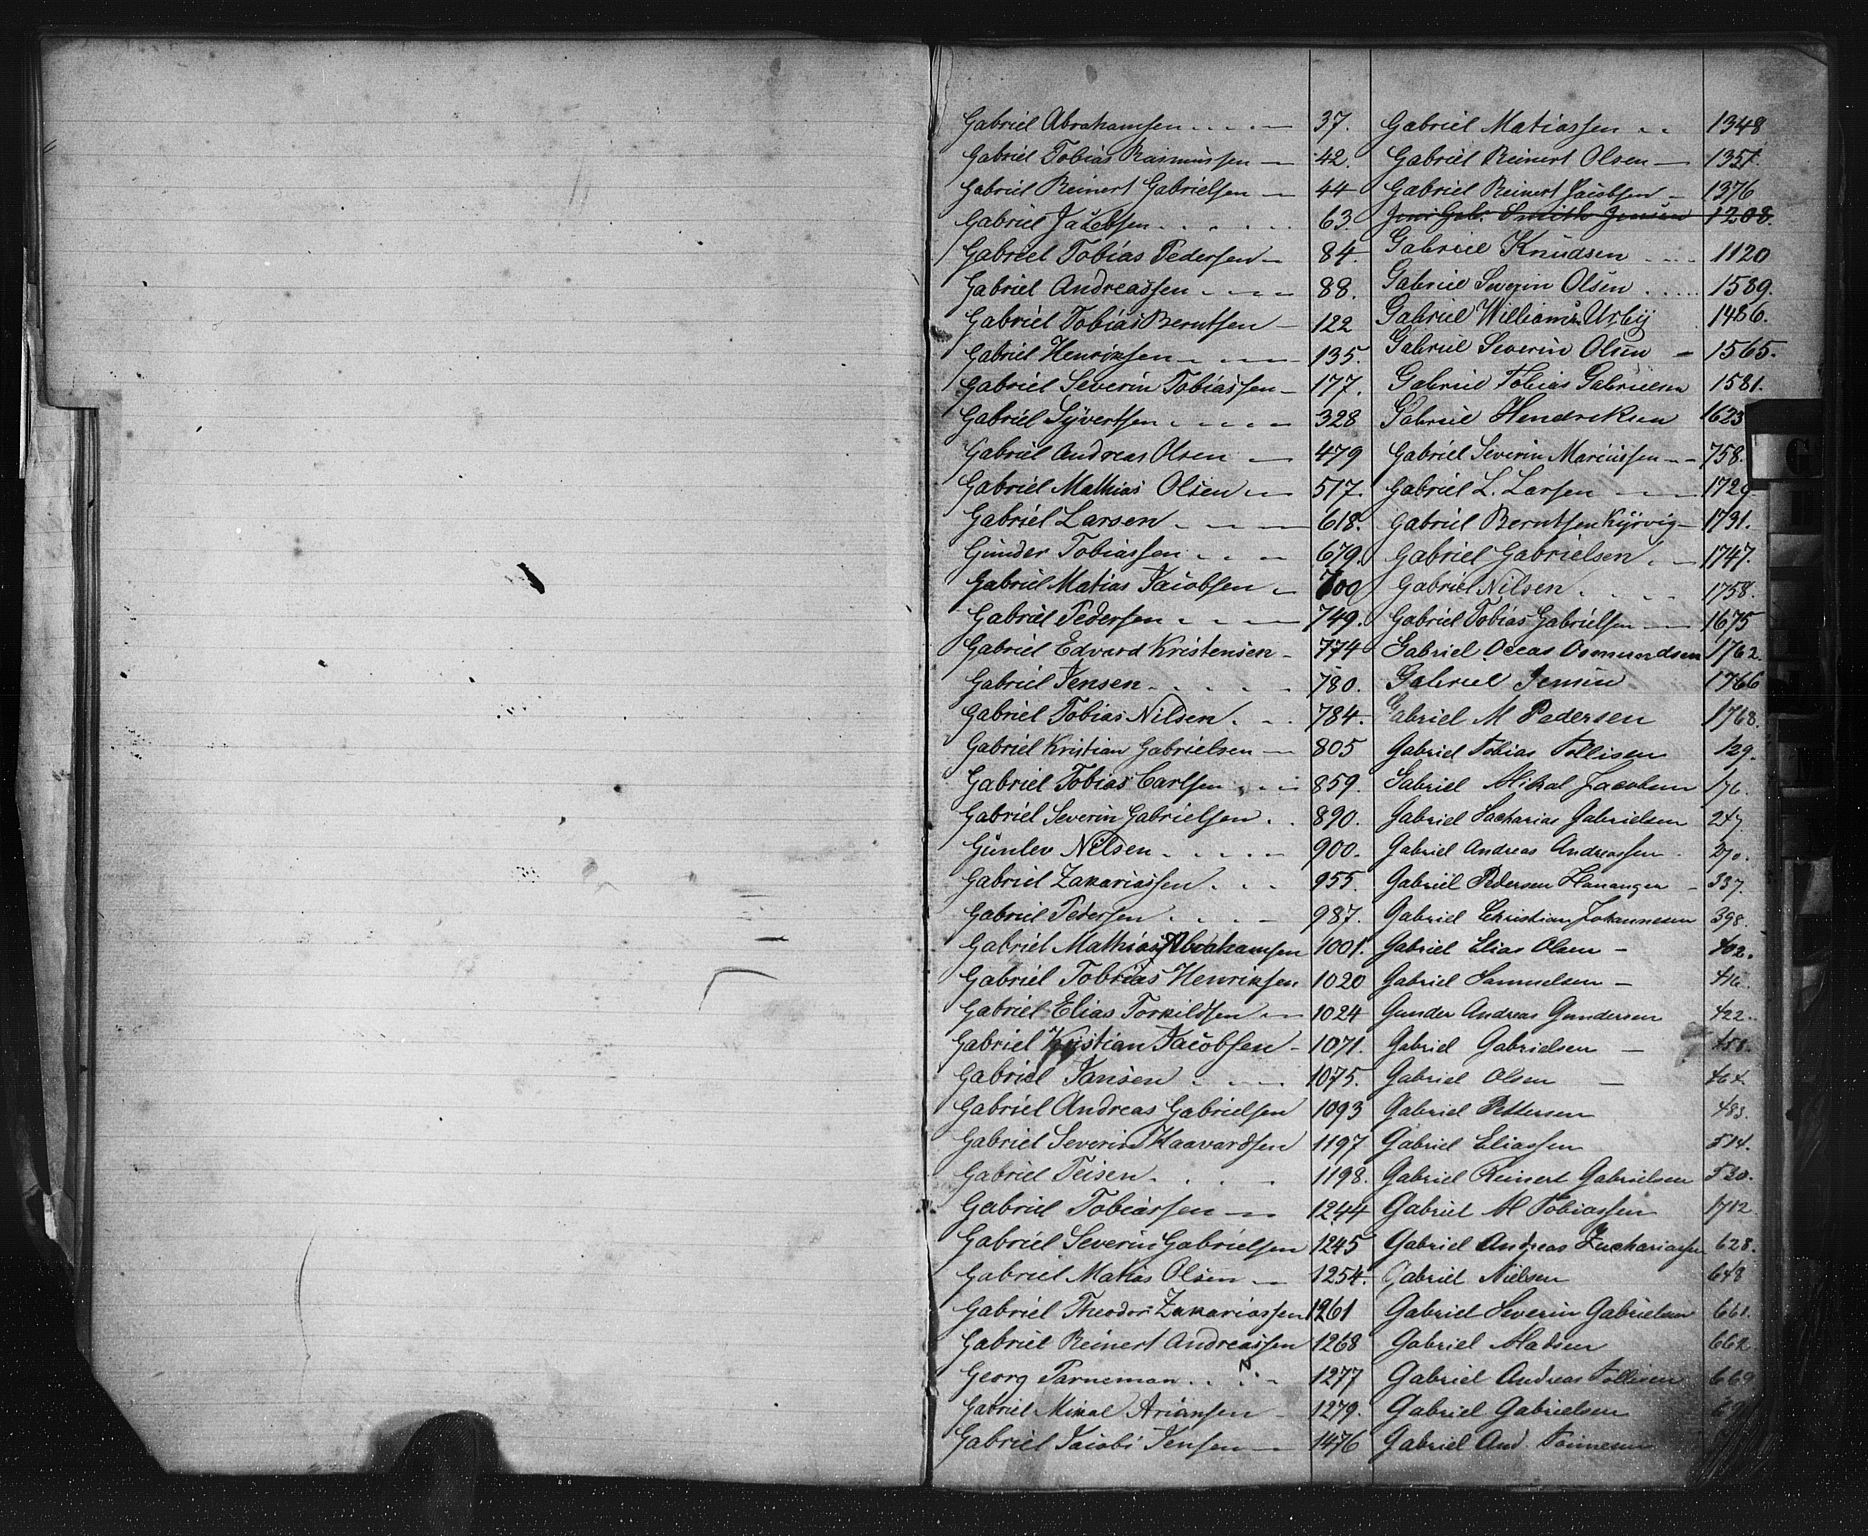 Gabriel Abrahamsen 37.
Gabriel Tobias Rasmussen 42.
Gabriel Reinert Gabrielsen 44
Gabriel Jacobsen 63.
Gabriel Tobias Pedersen 84.
Gabriel Andreassen 88.
Gabriel Tobias Berntsen 122
Gabriel Henriksen 135.
Gabriel Severin Tobiassen 177.
Gabriel Syvertsen 328
Gabriel Andreas Olsen 479
Gabriel Mathias Olsen 517.
Gabriel Larsen 618.
Gunder Tobiassen 679.
Gabriel Matias Jacobsen 700
Gabriel Pedersen 749.
Gabriel Edvard Kristensen 774
Gabriel Jensen 780.
Gabriel Tobias Nilsen 784.
Gabriel Kristian Gabrielsen 805
Gabriel Tobias Carlsen 859.
Gabriel Severin Gabrielsen 890.
Gunlev Nilsen 900.
Gabriel Zakariassen 955.
Gabriel Pedersen 987.
Gabriel Mathias Abrahamsen 1001.
Gabriel Tobias Henriksen 1020
Gabriel Elias Torkildsen 1024
Gabriel Kristian Jacobsen 1071.
Gabriel Jansen 1075.
Gabriel Andreas Gabrielsen 1093
Gabriel Severin Haavardsen 1197
Gabriel Teisen 1198.
Gabriel Tobiassen 1244
Gabriel Severin Gabrielsen 1245
Gabriel Matias Olsen 1254.
Gabriel Theodor Zakariassen 1261
Gabriel Reinert Andreassen 1268
Georg Parneman 1277
Gabriel Mikal Ariansen 1279.
Gabriel Jacobi Jensen 1476
Gabriel Matiassen 1348
Gabriel Reinert Olsen 1351.
Gabriel Reinert Jacobsen 1376
Smith Jensen 1208.
Gabriel Knudsen 1120
Gabriel Severin Olsen 1589.
Gabriel William 1486.
Gabriel Severin Olsen 1565.
Gabriel Tobias Gabrielsen 1581.
Gabriel Hendriksen 1623
Gabriel Severin Mariussen 758.
Gabriel L. Larsen
Gabriel Berntsen Kyrvig 1731.
Gabriel Gabrielsen 1747.
Gabriel Nilsen 1758.
Gabriel Tobias Gabrielsen 1675
Gabriel Oseas Osmundsen 1762.
Gabriel Jensen 1766
Gabriel M Pedersen 1768.
Gabriel Tobias Tollisen 129.
Gabriel Mikal Jacobsen 176.
Gabriel Zacharias Gabrielsen 247.
Gabriel Andreas Andreassen 270.
Gabriel Pedersen Hananger 337.
Gabriel Christian Johannesen 398
Gabriel Elias Olsen 402.
Gabriel Samuelsen 416.
Gunder Andreas Gundersen 422.
Gabriel Gabrielsen
Gabriel Olsen 464.
Gabriel Pettersen 483.
Gabriel Eliassen 514.
Gabriel Reinert Gabrielsen 520.
Gabriel M Tobiassen 1712
Gabriel Andreas Zachariassen 628.
Gabriel Nielsen 648
Gabriel Severin Gabrielsen 661.
Gabriel Madsen 662
Gabriel Andreas Tollisen 669
Gabriel Gabrielsen
Gabriel And. Tønnesen
G